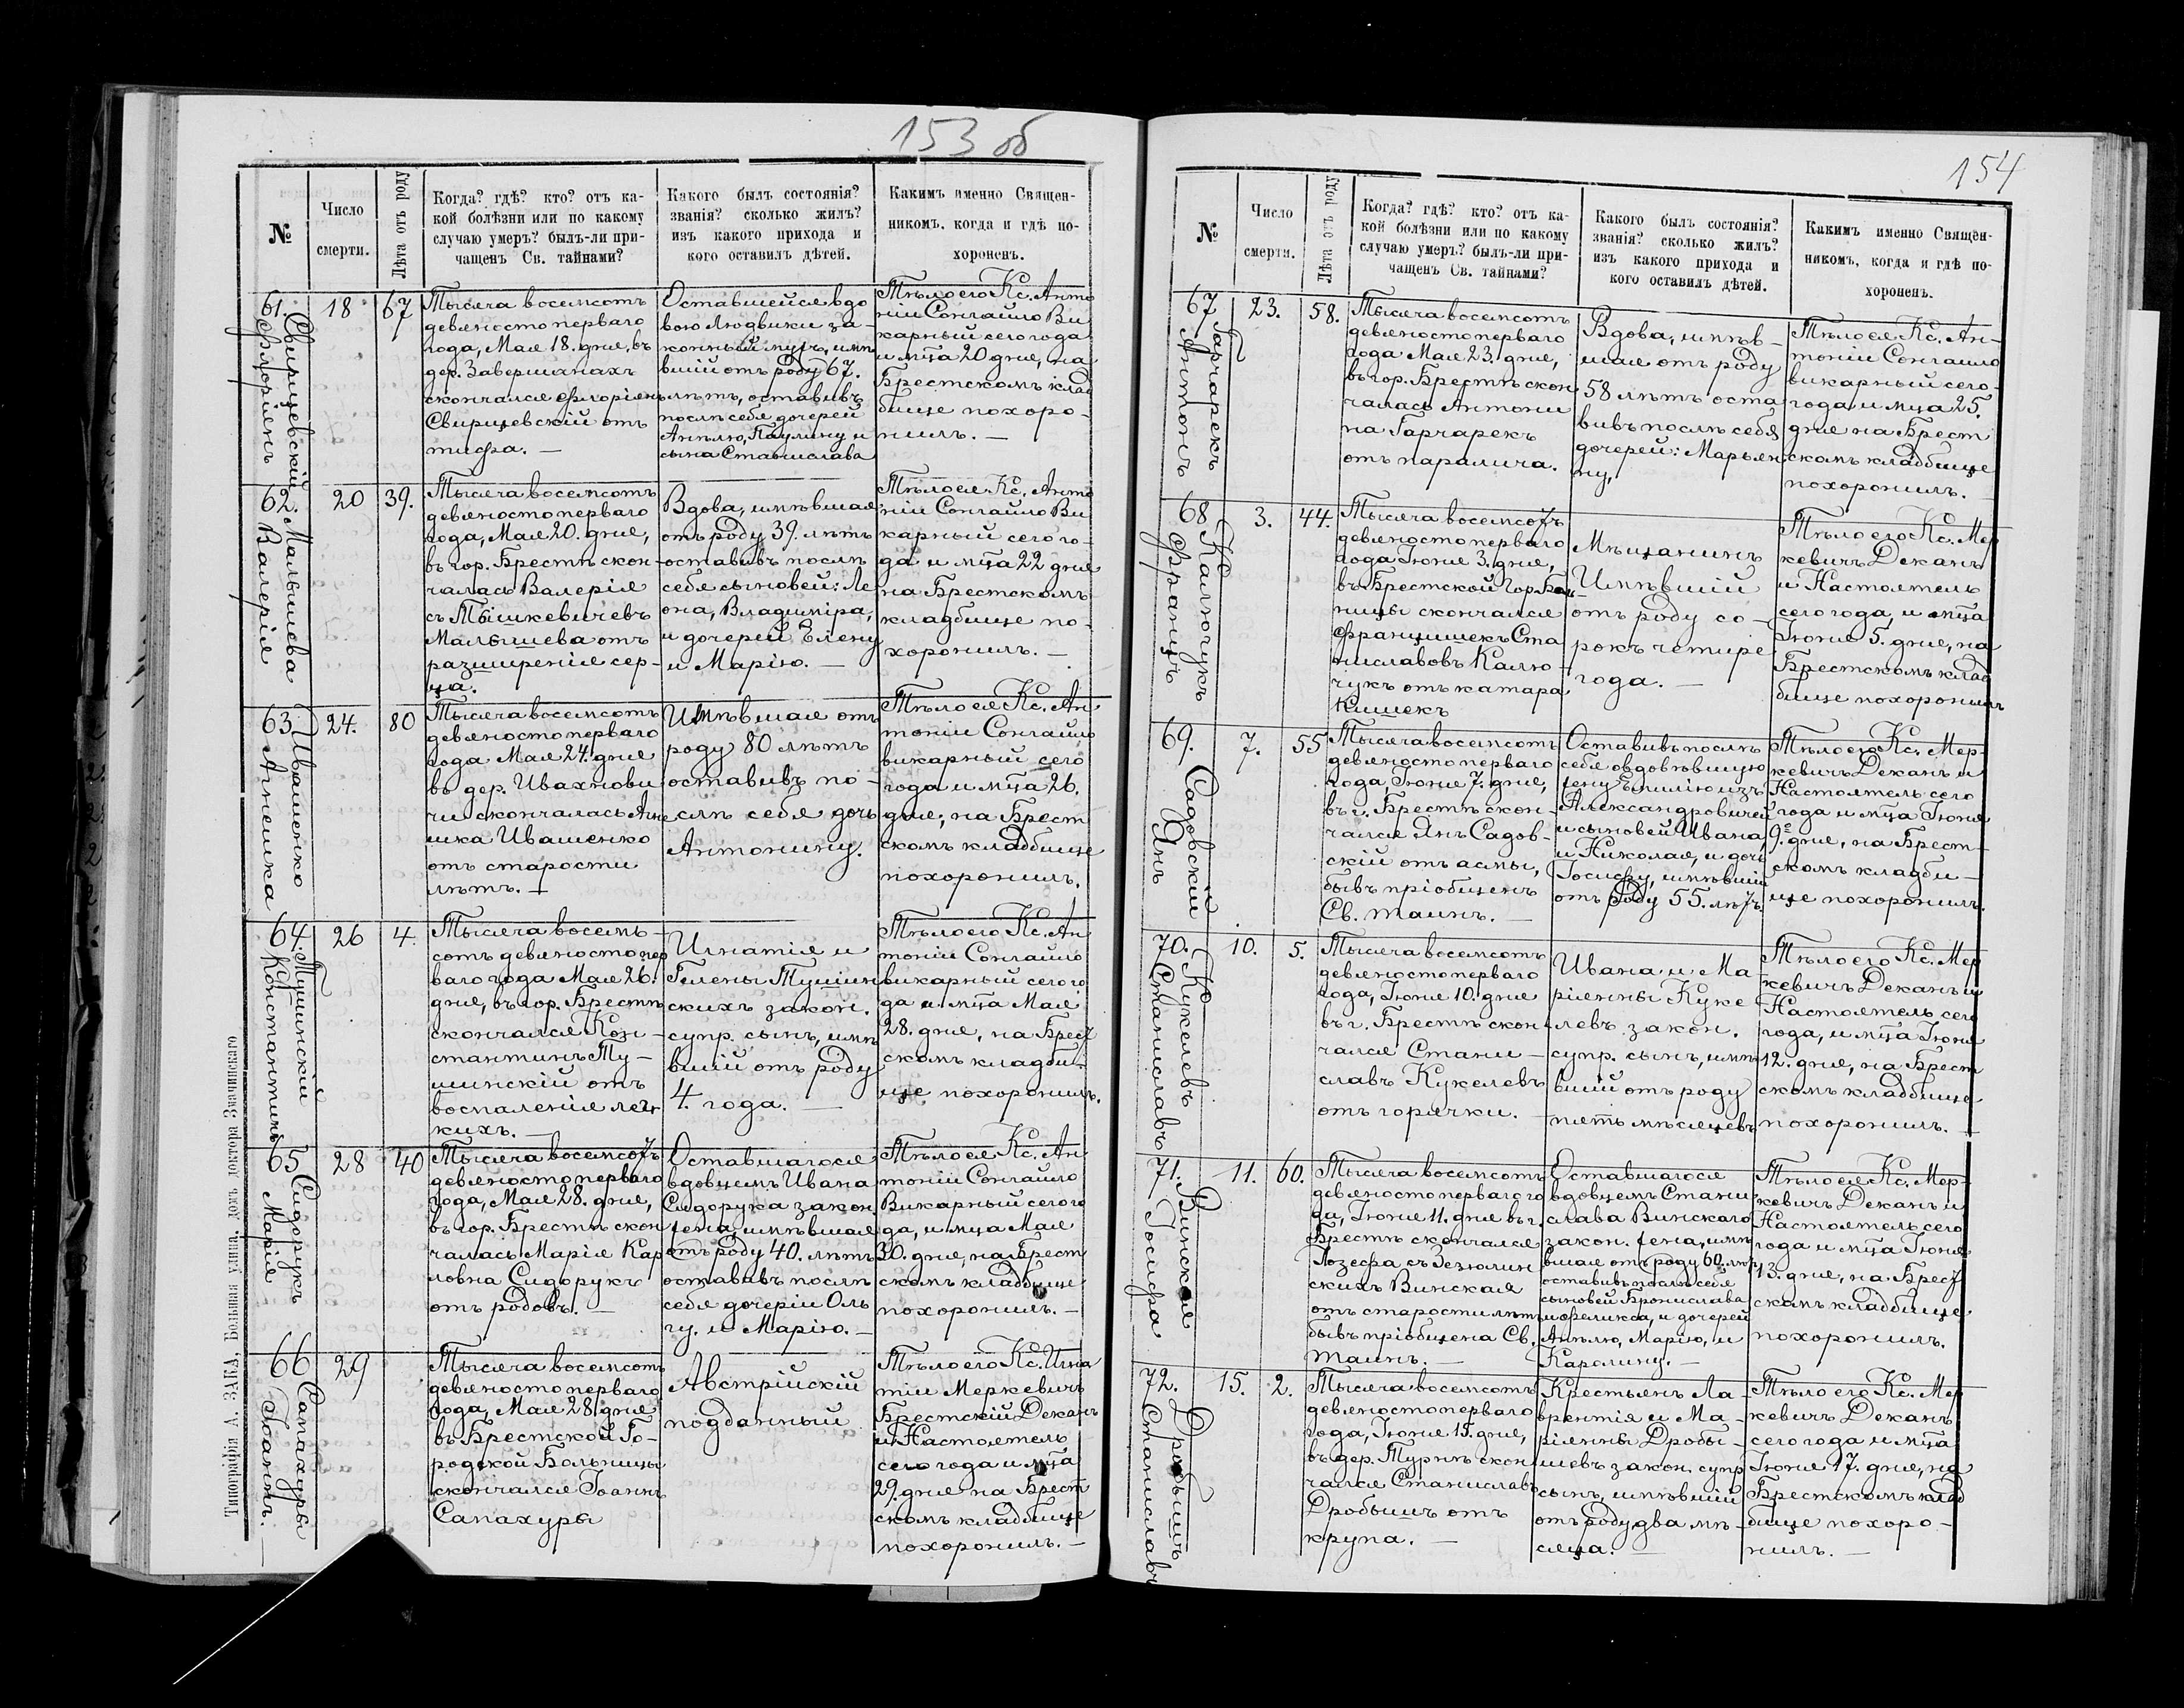 153 об
№
Число
смерти.
Лѣта отъ роду
Когда? гдѣ? кто? отъ ка-
кой болѣзни или по какому
случаю умеръ? былъ-ли при-
чащенъ Св. тайнами?
Какого былъ состоянія?
званія? сколько жилъ?
изъ какого прихода и
кого оставилъ дѣтей.
Какимъ именно Священ-
никомъ, когда и гдѣ по-
хороненъ.
61.
Свирщевскій
Флоріенъ
18
67
Тысяча восемсотъ
девяносто перваго
года, Мая 18. дня, въ
дер. Завершанахъ
скончался Флоріенъ
Свирщевскій отъ
тифа. —
Оставшейся вдо
вою Людвики за-
конный мужъ, имѣ
вшій отъ роду 67.
лѣтъ, оставивъ
послѣ себя дочерей
Анѣлю, Паулину и
сына Станислава
Тѣло его Кс. Анто
ній Сонгайло Ви
карный сего года
и мца 20 дня, на
Брестскомъ клад
бище похоро-
нилъ. —
62.
Малышева
Валерія
20
39.
Тысяча восемсотъ
девяносто перваго
года, Мая 20. дня,
въ гор. Брестѣ скон-
чалась Валерія
съ Тышкевичевъ
Малышева отъ
разширенія сер-
ца.
Вдова, имѣвшая
отъ роду 39. лѣтъ
оставивъ послѣ
себя сыновей: Ле
она, Владиміра,
и дочерей Елену
и Марію. —
Тѣло ея Кс. Анто
ній Сонгайло Ви
карный сего го-
да и мца 22 дня
на Брестскомъ
кладбище по-
хоронилъ. —
63.
Ивашенко
Агнешка
24.
80
Тысяча восемсотъ
девяносто перваго
года Мая 24. дня
въ дер. Ивахнови
чи скончалась Агне
шка Ивашенко
отъ старости
лѣтъ. —
Имѣвшая отъ
роду 80 лѣтъ
оставивъ по-
слѣ себя дочь
Антонину.
Тѣло ея Кс. Ан
тоній Сонгайло
викарный сего
года и мца 26.
дня, на Брест
скомъ кладбище
похоронилъ.
64.
Тушинскій
Константинъ
26
4.
Тысяча восемь-
сотъ девяносто пер
ваго года Мая 26.
дня, въ гор. Брестѣ
скончался Кон-
стантинъ Ту-
шинскій отъ
воспаленія лег
кихъ. —
Игнатія и
Гелены Тушин
скихъ закон.
супр. сынъ, имѣ
вшій отъ роду
4. года. —
Тѣло его Кс. Ан
тоній Сонгайло
викарный сего го
да и мца Мая
28. дня, на Брест
скомъ кладби-
ще похоронилъ.
65
Сидорукъ
Марія
28
40
Тысяча восемсотъ
девяносто перваго
года, Мая 28. дня,
въ гор. Брестѣ скон
чалась Марія Кар
ловна Сидорукъ
отъ родовъ. —
Оставшагося
вдовцемъ Ивана
Сидорука закон.
жена, имѣвшая
отъ роду 40. лѣтъ
оставивъ послѣ
себя дочерій Оль
гу. и Марію. —
Тѣло ея Кс. Ан
тоній Сонгайло
Викарный сего го
да, и мца Мая
30. дня, на Брест
скомъ кладбище
похоронилъ. —
66
Сапахуры
Іоаннъ. —
29
Тысяча восемсотъ
девяносто перваго
года, Мая 28. дня
въ Брестской Го-
родской Больницы
скончался Іоаннъ
Сапахуры
Австрійскій
подданный
Тѣло его Кс. Игна
тій Меркевичъ
Брестскій Деканъ
и Настоятель
сего года и мца
29. дня на Брест
скомъ кладбище
похоронилъ. —
Типографія А. ЗАКА, Большая улица, домъ доктора Знаминскаго
154
№
Число
смерти.
Лѣта отъ роду
Когда? гдѣ? кто? отъ ка-
кой болѣзни или по какому
случаю умеръ? былъ-ли при-
чащенъ Св. тайнами?
Какого былъ состоянія?
званія? сколько жилъ?
изъ какого прихода и
кого оставилъ дѣтей.
Какимъ именно Священ-
никомъ, когда и гдѣ по-
хороненъ.
67
Гарчарекъ
Антонъ
23.
58.
Тысяча восемсотъ
девяносто перваго
года Мая 23. дня,
въ гор. Брестѣ скон
чалась Антони
на Гарчарекъ
отъ паралича.
Вдова, имѣв-
шая отъ роду
58 лѣтъ оста
вивъ послѣ себя
дочерей: Марьян
ну,
Тѣло ея Кс. Ан-
тоній Сонгайло
викарный сего-
года и мца 25.
дня на Брест
скомъ кладбище
похоронилъ.
68
Калючукъ
Францъ
3.
44.
Тысяча восемсотъ
девяносто перваго
года Іюня 3. дня,
въ Брестской Гор. Бол
ницы скончался
Францишекъ Ста
ниславовъ Калю-
чукъ отъ катара
Кишекъ
Мѣщанинъ
Имѣвшій
отъ роду со-
рокъ четире
года. —
Тѣло его Кс. Мер
кевичъ Деканъ
и Настоятель
сего года, и мца
Іюня 5. дня, на
Брестскомъ клад
бище похоронилъ
69.
Садовскій
Янъ
7.
55
Тысяча восемсотъ
девяносто перваго
года, Іюня 7. дня,
въ г. Брестѣ скон-
чался Янъ Садов-
скій отъ асмы,
бывъ пріобщенъ
Св. таинъ. —
Оставивъ послѣ
себя овдовѣвшую
жену Емилію изъ
Александровичей
и сыновей Ивана,
и Николая, и дочь
Іосифу, имѣвшій
отъ роду 55. лѣтъ.
Тѣло его Кс. Мер-
кевичъ Деканъ и
Настоятель сего
года и мца Іюня
9. дня, на Брест-
скомъ кладби-
ще похоронилъ.
70.
Кукелевъ
Станиславъ
10.
5.
Тысяча восемсотъ
девяносто перваго
года, Іюня 10. дня
въ г. Брестѣ скон
чался Стани-
славъ Кукелевъ
отъ горячки. —
Ивана и Ма-
ріянны Куке
левъ закон.
супр. сынъ, имѣ
вшій отъ роду
пять мѣсяцевъ
Тѣло его Кс. Мер
кевичъ Деканъ и
Настоятель сего
года, и мца Іюня
12. дня, на Брест
скомъ кладбище
похоронилъ. —
71.
Винская
Іосифа
11.
60.
Тысяча восемсотъ
девяносто перваго го
да, Іюня 11. дня въ г.
Брестѣ скончался
Іозефа съ Зезюлин
скихъ Винская
отъ старости лѣтъ
бывъ пріобщена Св.
Таинъ. —
Оставшагося
вдовцемъ Стани
слава Винскаго
закон. жена, имѣ
вшая отъ роду 60. лѣтъ
оставивъ послѣ себя
сыновей Бронислава
и Феликса, и дочерей
Анѣлю, Марію, и
Каролину. —
Тѣло ея Кс. Мер-
кевичъ Деканъ и
Настоятель сего
года и мца Іюня
13. дня, на Брест
скомъ кладбище
похоронилъ.
72.
Дробышъ
Станиславъ
15.
2.
Тысяча восемсотъ
девяносто перваго
года, Іюня 15. дня,
въ дер. Турнѣ скон
чался Станиславъ
Дробышъ отъ
крупа. —
Крестьянъ Ла-
врентія и Ма-
ріянны Дробы-
шевъ закон. супр
сынъ, имѣвшій
отъ роду два мѣ-
сяца. —
Тѣло его Кс. Мер
кевичъ Деканъ
сего года и мца
Іюня 17. дня, на
Брестскомъ клад
бище похоро-
нилъ. —